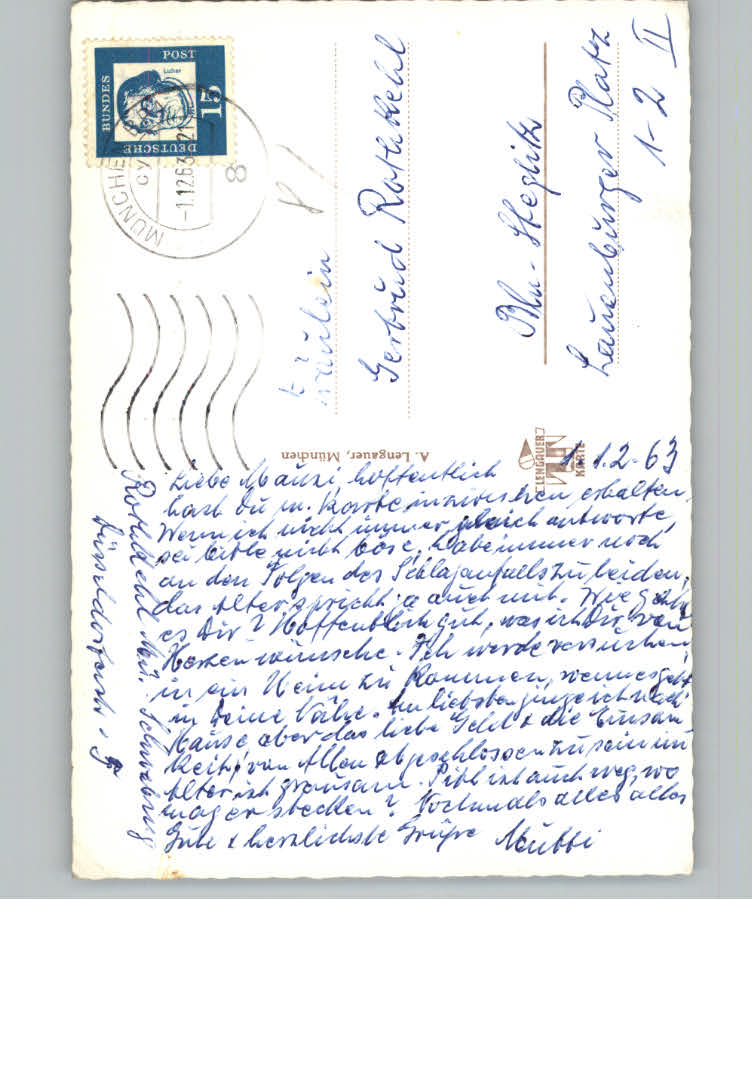 DEUTSCHE
BUNDES
POST
15
Luther
MÜNCHEN
-1.12.63-21
8
Fräulein
Gertrud Rothkehl
Bln-Steglitz
Lauenburger Platz
1-2 II
A. Lengauer, München
LENGAUER
KARTE
1.12.63
Liebe Mauzi, hoffentlich
hast Du m. Karte inzwischen erhalten,
Wenn ich nicht immer gleich antworte,
sei bitte nicht böse, habe immer noch
an den Folgen des Schlaganfalls zu leiden,
das Alter spricht ja auch mit. Wie geht
es Dir? Hoffentlich gut, was ich Dir von
Herzen wünsche. Ich werde versuchen,
in ein Heim zu kommen, wenn es geht
in Deine Nähe. Am liebsten ginge ich nach
Hause, aber das liebe Geld & die Einsam
keit, von Allen abgeschlossen zu sein im
Alter ist grausam. ist auch weg, wo
mag er stecken? Nochmals alles alles
Gute & herzlichste Grüße Mutti
Rothkehl Mü. Schwabing
Düsseldorferstr.